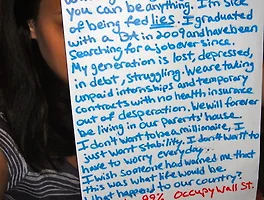 you can be anything. I'm sick
of being fed lies. I graduated
with a BA in 2009 and have been
searching for a job ever since.
My generation is lost, depressed,
in debt, struggling. We are taking
unpaid internships and temporary
contracts with no health insurance
out of desperation. We will forever
be living in our parents' house.
I don't want to be a millionaire, I
just want stability. I don't want to
have to worry everyday...
I wish someone had warned me that
this was what life would be.
What happened to our country?
99% OCCUPY WALL ST.